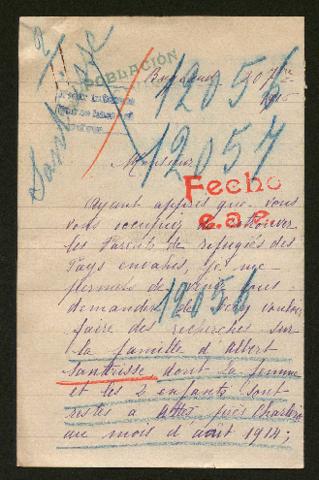 POBLACIÓN
12056
1915
12057
Monsieur
Fecho
e.a.e
Ayant appris que vous
vous occupiez de retrouver
les Parents de refugiés des
Pays envahis, je me
permets de venir vous
12058
demander de bien vouloir
faire des recherches sur
la famille d'Albert
dont la femme
et les 2 enfants sont
restés à près Charleroi
au mois d'août 1914;